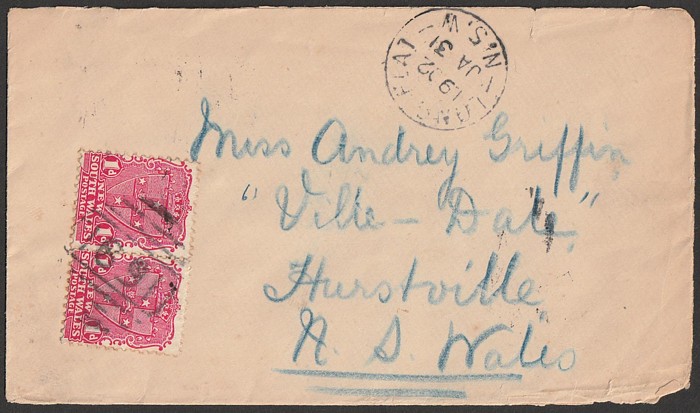 LONG FLAT
1902
JA 31
N.S.W
Miss Audrey Griffin
"Ville - Dale"
Hurstville
N. S. Wales
1d NEW 1d
SOUTH WALES
POSTAGE
1d NEW 1d
SOUTH WALES
POSTAGE